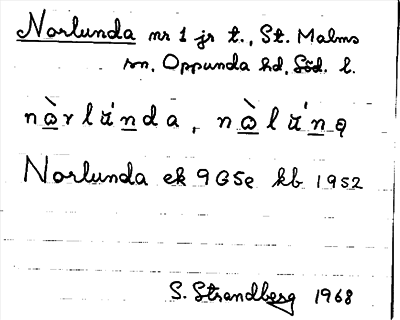 Norlunda nr 1 jr t., St. Malms
sn, Oppunda hd, Söd. l.
nòrlúnda, nòlúnə
Norlunda ek 9G5e kb 1952
S. Strandberg 1968